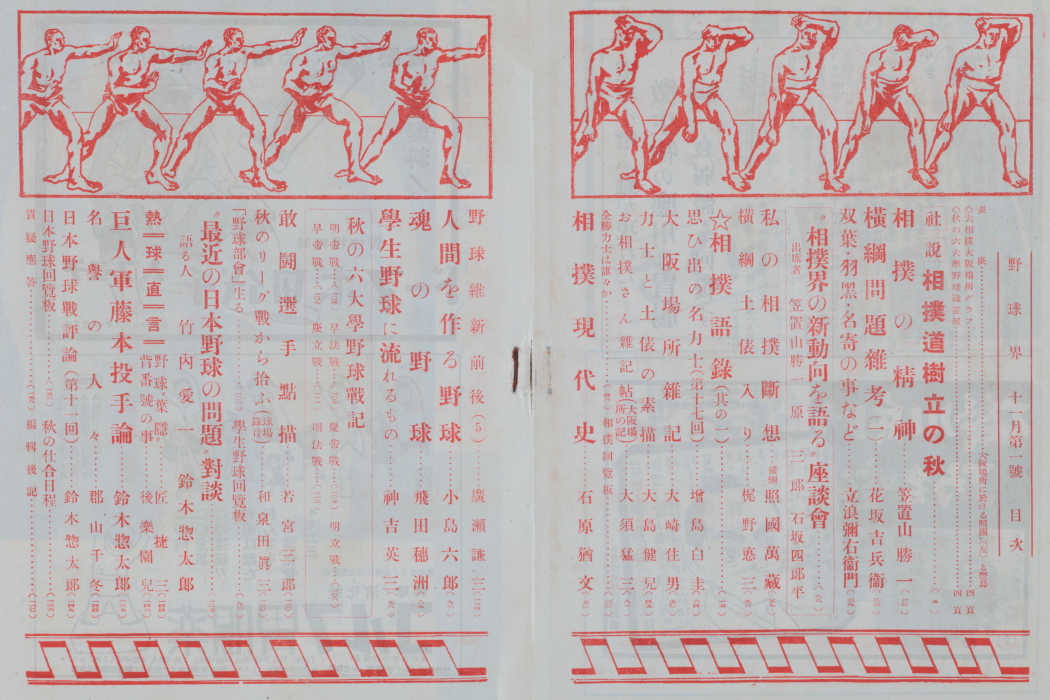 野球界 十一月第一號 目次
表紙 大阪場所に於ける照國(左)と
◇大相撲大阪場所グラフ 四頁
◇秋の六大學野球戰
社說 相撲道樹立の秋
相撲の精神 笠置山勝一
橫綱問題雜考(二) 花坂吉兵衞
双葉・羽黑・名寄の事など 立浪彌右衞門
"相撲界の新動向を語る"座談會
出席者 笠置山勝一 原三郎 石坂四郎平
私の相撲斷想 橫綱 照國萬藏
橫綱土俵入り 梶野悳三
☆相撲語錄(其の一)
思ひ出の名力士(第十七回) 增島白圭
大阪場所雜記 大崎佳男
力士と土俵の素描 大島健兒
お相撲さん雜記帖(大阪場所の記) 大須猛三
全勝力士は誰々か 相撲回覽板
相撲現代史 石原猶文
野球維新前後(5) 廣瀨謙三
人間を作る野球 小島六郎
魂の野球 飛田穗洲
學生野球に流れるもの 神吉英三
秋の六大學野球戰記
明帝戰 早法戰 慶帝戰 明立戰
早帝戰 慶立戰 明法戰
敢鬪選手點描 若宮三郎
秋のリーグ戰から拾ふ(球場錄音) 和泉田眞三
「野球部會」生る 學生野球回覽板
"最近の日本野球の問題"對談
語る人 竹內愛一 鈴木惣太郎
熱=球=直=言= 野球葉隱 匠捷三
背番號の事 後樂園兒
巨人軍藤本投手論 鈴木惣太郎
名譽の人々 郡山千冬
日本野球戰評論(第十一回) 鈴木惣太郎
日本野球回覽板 秋の仕合日程
質疑應答 編輯後記